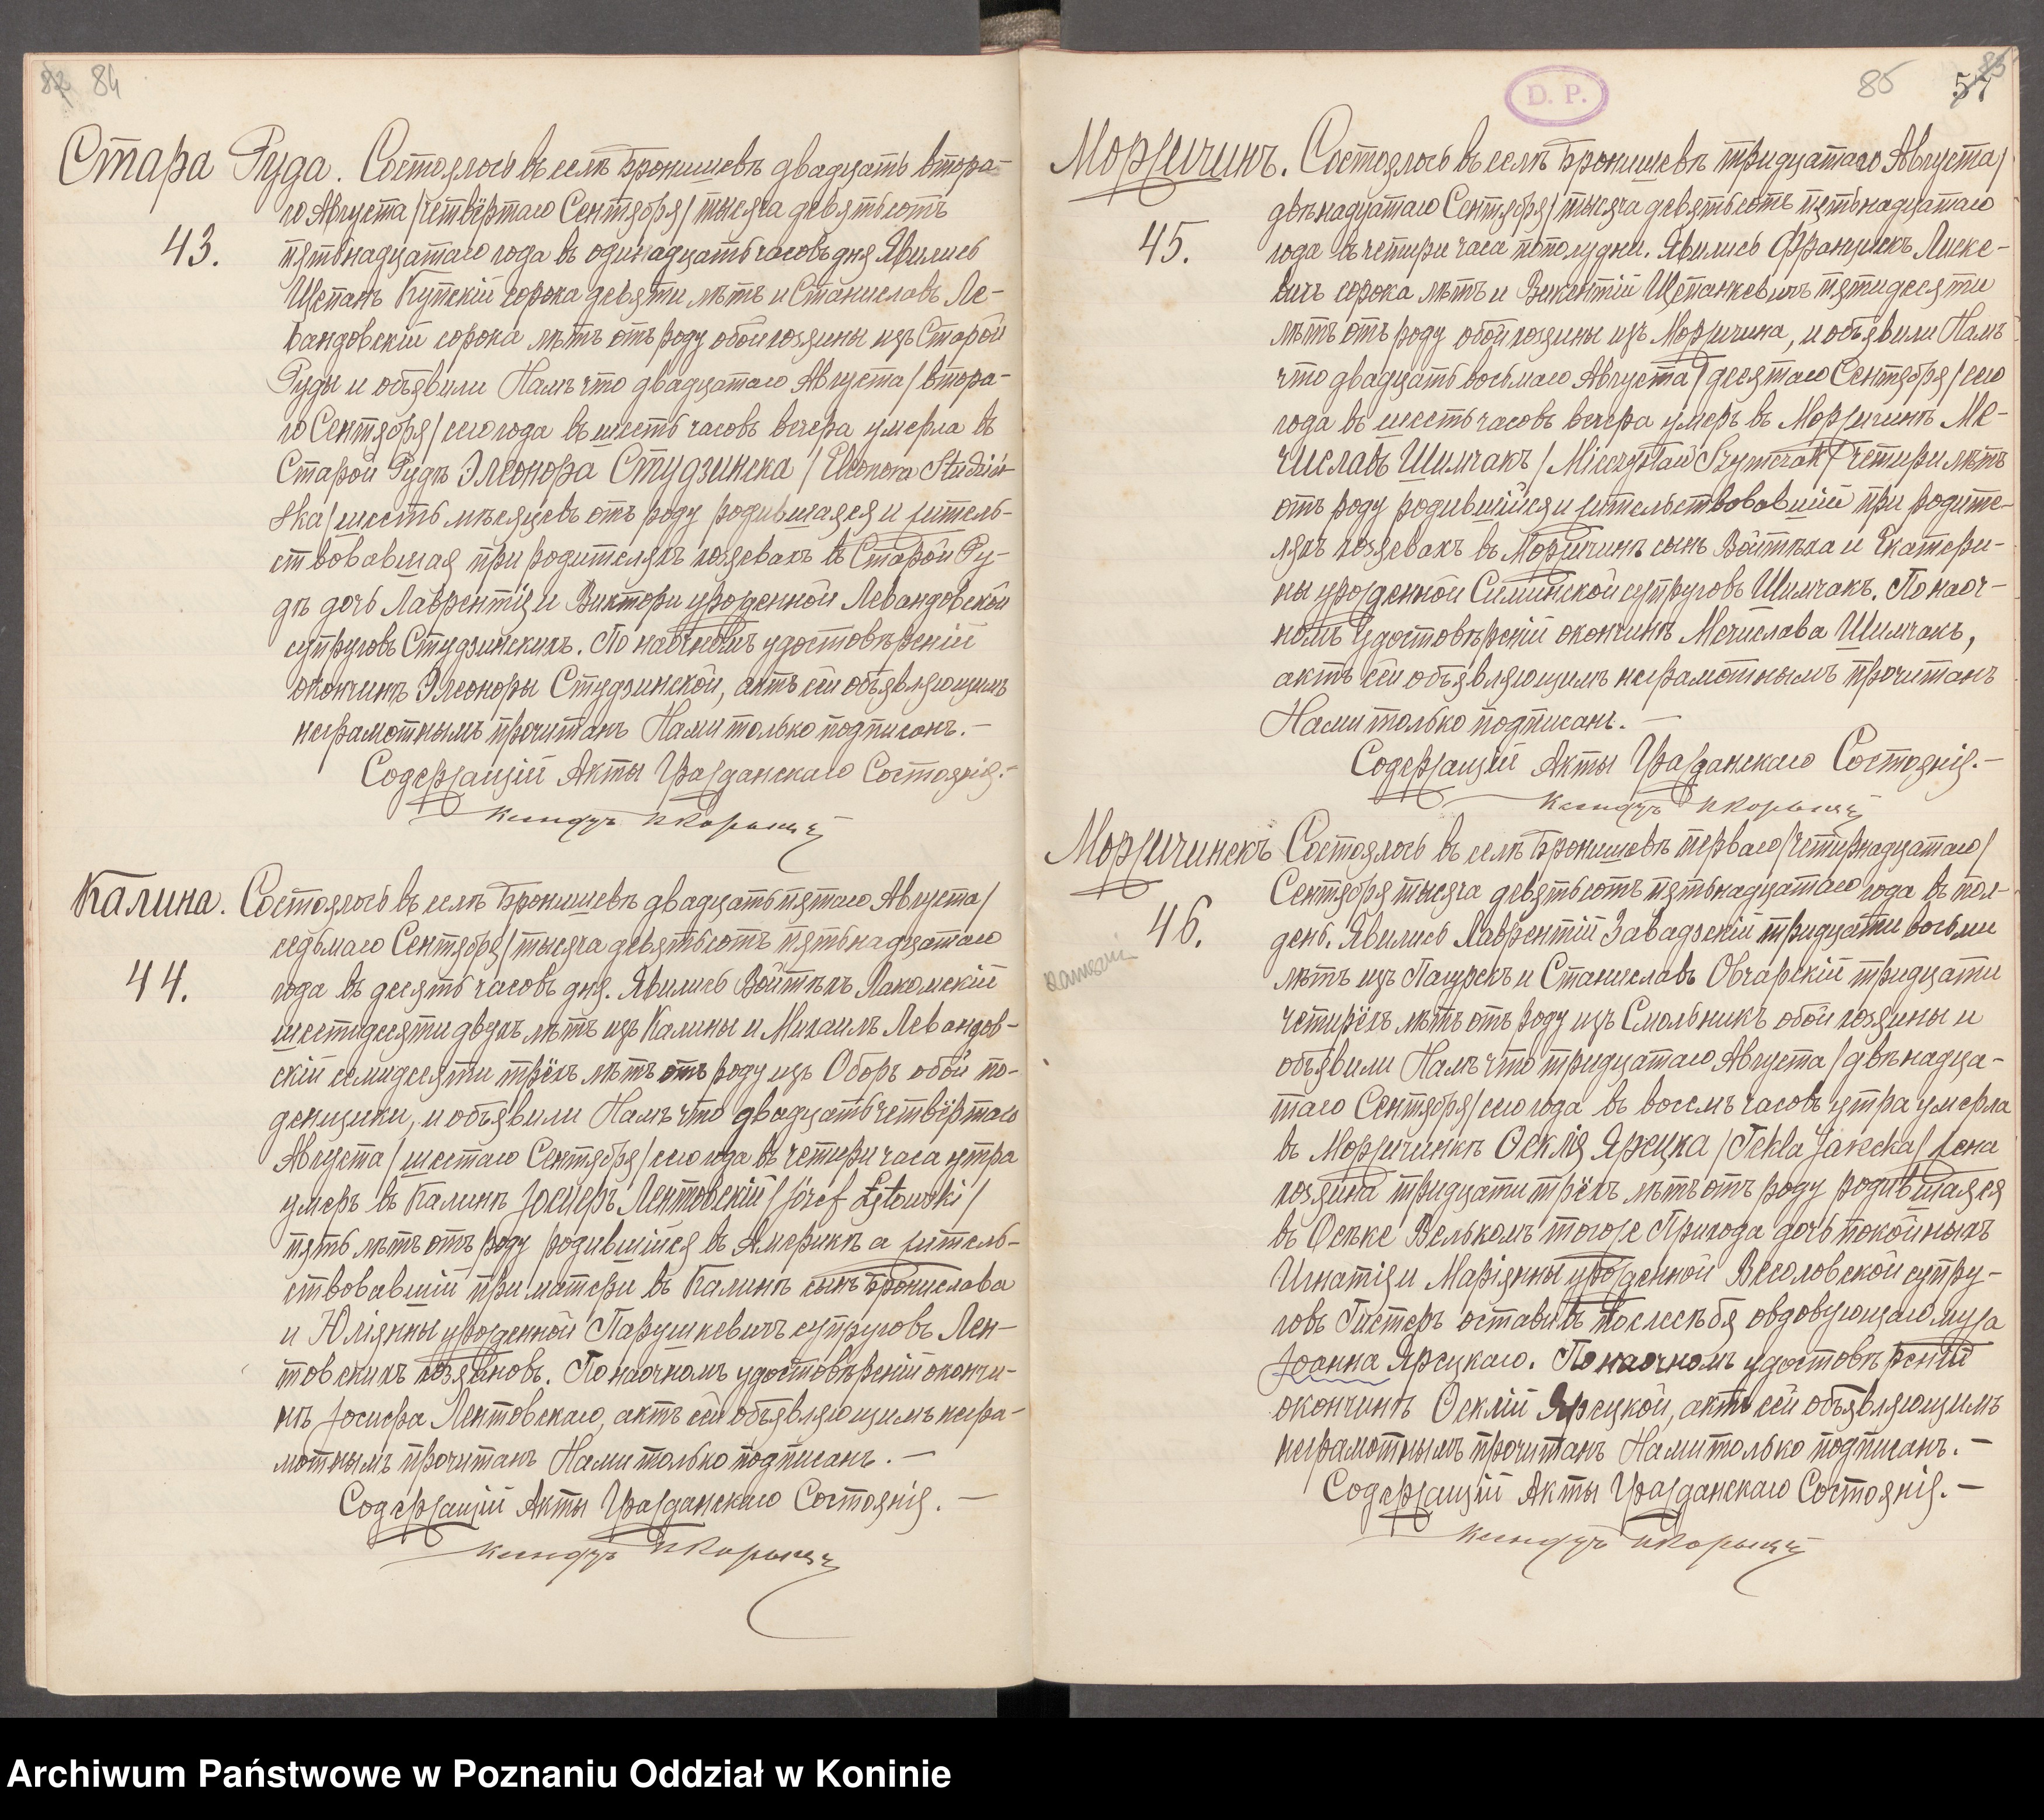 82 84
Стара Руда. Состоялось въ селѣ Бронишевѣ двадцать втора-
го Августа /четвёртаго Сентября/ тысяча девятьсотъ
43. пятьнадцатаго года въ одинадцать часовъ дня Явились
Щепанъ Купскій сорока девяти лѣтъ и Станиславъ Ле-
вандовскій сорока лѣтъ отъ роду обои хозяины изъ Старой
Руды и объявили Намъ что двадцатаго Августа / втора-
го Сентября / сего года въ шесть часовъ вечера умерла въ
Старой Рудѣ Элеонора Студзинска / Eleonora Studziń-
ska / шесть мѣсяцевъ отъ роду родившаяся и житель-
ствовавшая при родителяхъ хозяевахъ въ Старой Ру-
дѣ дочь Лаврентія и Виктори урожденной Левандовской
супруговъ Студзинскихъ. По наочномъ удостовѣреній
окончинѣ Элеоноры Студзинской, актъ сей объявляющимъ
неграмотнымъ прочитанъ Нами только подписанъ. —
Содержащій Акты Гражданскаго Состоянія. —
Ксендзъ
Калина. Состоялось въ селѣ Бронишевѣ двадцать пятаго Августа /
седьмаго Сентября / тысяча девятьсотъ пятьнадцатаго
44. года въ десять часовъ дня. Явились Войтѣхъ Лакомскій
шестидесяти двухъ лѣтъ изъ Калины и Михаилъ Левандов-
скій семидесяти трёхъ лѣтъ отъ роду изъ Оборъ обои по-
денщики, и объявили Намъ что двадцать четвёртаго
Августа / шестаго Сентября / сего года въ четыри часа утра
умеръ въ Калинѣ Іосифъ Лентовскій / Józef Lętowski /
пять лѣтъ отъ роду родившійся въ Америкѣ а житель-
ствовавшій при матери въ Калинѣ сынъ Бронислава
и Юліянны урожденной Парушкевичъ супруговъ Лен-
товскихъ хозяиновъ. По наочномъ удостовѣреній окончи-
нѣ Іосифа Лентовскаго, актъ сей объявляющимъ негра-
мотнымъ прочитанъ Нами только подписанъ. —
Содержащій Акты Гражданскаго Состоянія. —
Ксендзъ
D. P.
85 57
Моржичинъ. Состоялось въ селѣ Бронишевѣ тридцатаго Августа /
двѣнадцатаго Сентября / тысяча девятьсотъ пятьнадцатаго
45. года въ четыри часа пополудни. Явились Францискъ Лиске-
вичъ сорока лѣтъ и Викентій Щепанкевичъ пятидесяти
лѣтъ отъ роду обои хозяины изъ Моржичина, и объявили Намъ
что двадцать восьмаго Августа / десятаго Сентября / сего
года въ шесть часовъ вечера умеръ въ Моржичинѣ Ме-
числавъ Шимчакъ / Mieczysław Szymczak / четыри лѣтъ
отъ роду родившійся и жительствовавшій при родите-
ляхъ хозяевахъ въ Моржичинѣ сынъ Войтѣха и Екатери-
ны урожденной Силинской супруговъ Шимчакъ. По наоч-
номъ удостовѣреній окончинѣ Мечислава Шимчакъ,
актъ сей объявляющимъ неграмотнымъ прочитанъ
Нами только подписанъ. —
Содержащій Акты Гражданскаго Состоянія. —
Ксендзъ
Моржичинекъ Состоялось въ селѣ Бронишевѣ перваго / четырнадцатаго /
Сентября тысяча девятьсотъ пятьнадцатаго года въ пол-
46. день. Явились Лаврентій Завадзкій тридцати восьми
лѣтъ изъ и Станиславъ Овчарскій тридцати
четырёхъ лѣтъ отъ роду изъ Смольникъ обои хозяины и
объявили Намъ что тридцатаго Августа / двѣнадца-
таго Сентября / сего года въ восемъ часовъ утра умерла
въ Моржичинкѣ Ѳеклія Яреңка / Tekla Jarecka / жена
хозяина тридцати трёхъ лѣтъ отъ роду родившаяся
въ Осѣке Велькомъ тогоже Прихода дочь покойныхъ
Игнатія и Маріянны урожденной Весоловской супру-
говъ оставивъ послѣ себя овдовѣющаго мужа
Іоанна Ярецкаго. По наочномъ удостовѣреній
окончинѣ Ѳеклій Ярецкой, актъ сей объявляющимъ
неграмотнымъ прочитанъ Нами только подписанъ. —
Содержащій Акты Гражданскаго Состоянія. —
Ксендзъ
Archiwum Państwowe w Poznaniu Oddział w Koninie